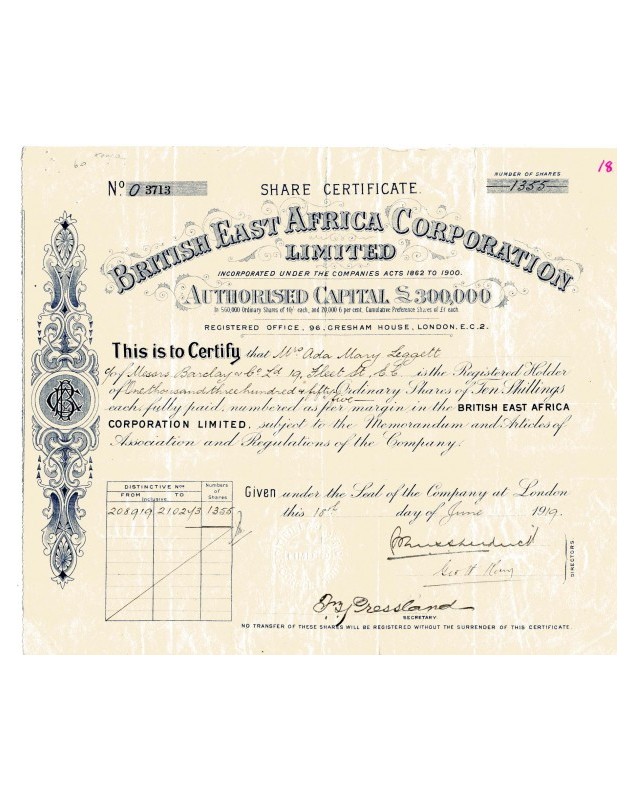 18
Nº O 3713 SHARE CERTIFICATE.
NUMBER OF SHARES
1355
BRITISH EAST AFRICA CORPORATION
LIMITED
INCORPORATED UNDER THE COMPANIES ACTS 1862 TO 1900.
AUTHORISED CAPITAL £300,000
In 560,000 Ordinary Shares of 10/- each, and 20,000 6 per cent. Cumulative Preference Shares of £1 each
REGISTERED OFFICE, 96, GRESHAM HOUSE, LONDON, E.C.2.
This is to Certify that Mrs Ada Mary Leggett
c/o Messrs Barclay & Co Ld 19, Fleet St, E.C. is the Registered Holder
of One thousand three hundred & fifty five Ordinary Shares of Ten Shillings
each, fully paid, numbered as per margin in the BRITISH EAST AFRICA
CORPORATION LIMITED, subject to the Memorandum and Articles of
Association and Regulations of the Company.
DISTINCTIVE Nos
Numbers of Shares
FROM Inclusive TO
208919 210273 1355
Given under the Seal of the Company at London
this 18th day of June 1919.
Geo H King
DIRECTORS
Pressland
SECRETARY
NO TRANSFER OF THESE SHARES WILL BE REGISTERED WITHOUT THE SURRENDER OF THIS CERTIFICATE.